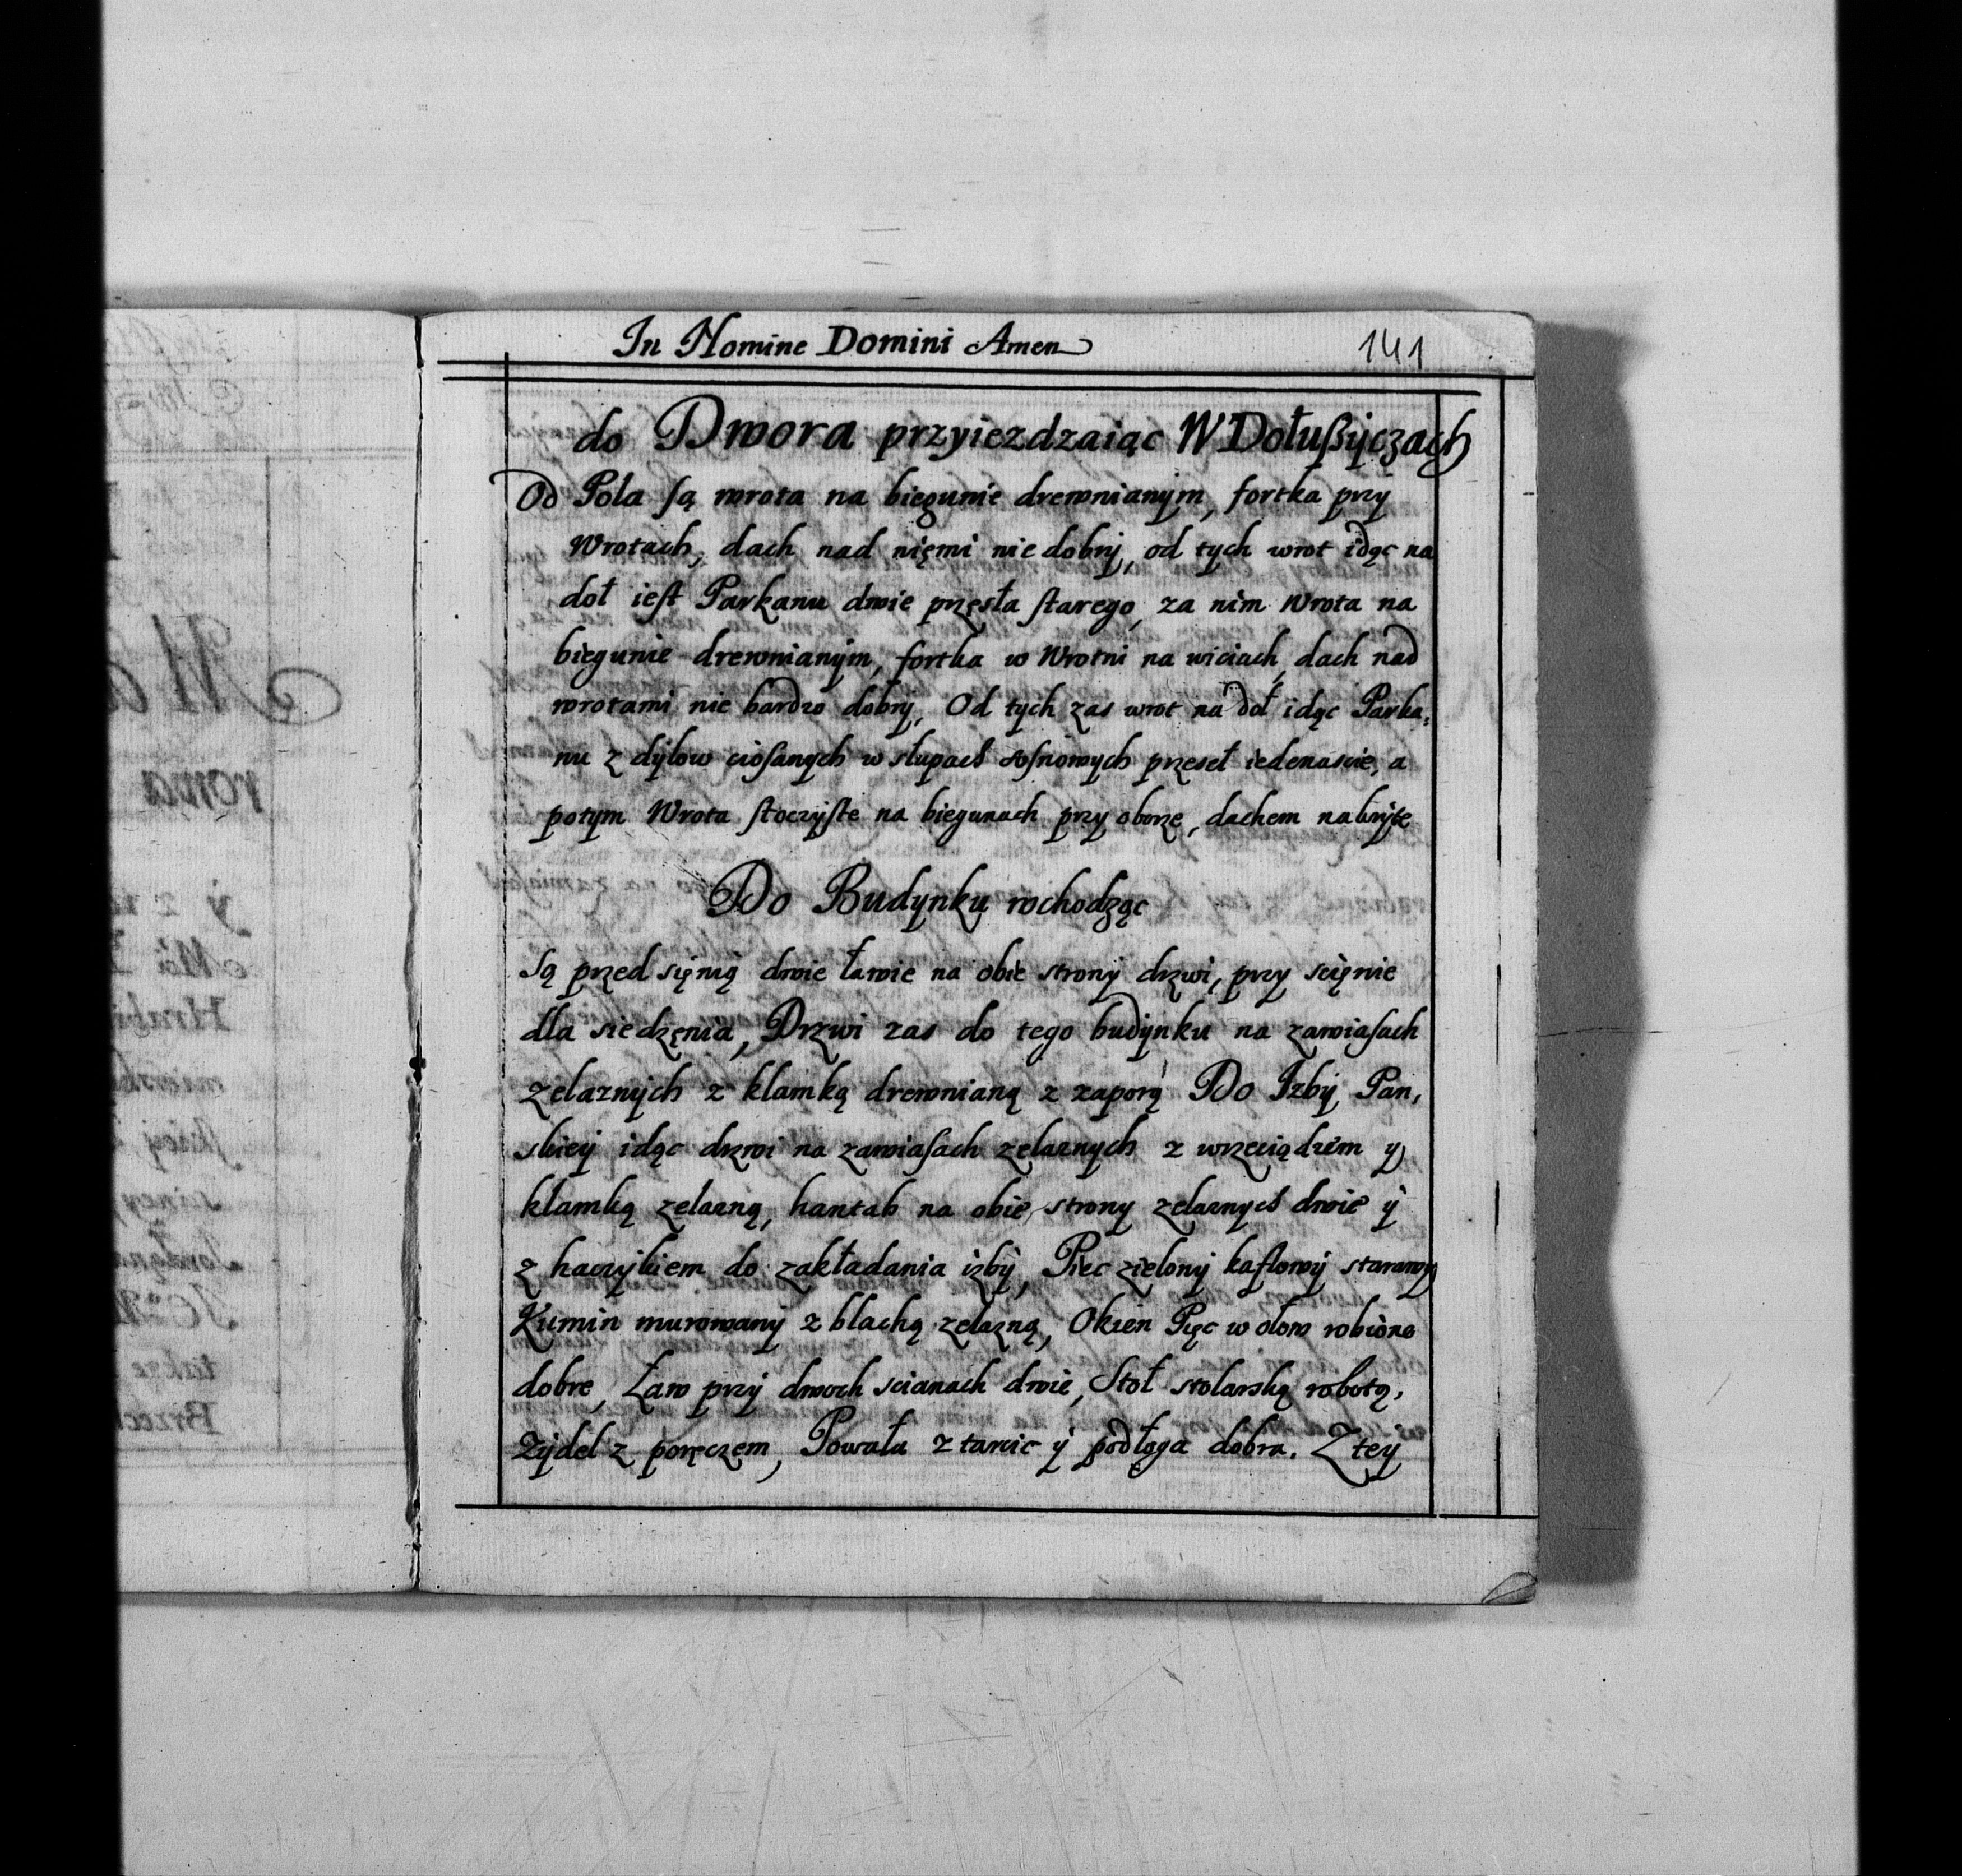 In Nomine Domini Amen
141
do Dwora przyiezdzaiąc W Dołußyczach
Od Pola są wrota na biegunie drewnianym, fortka przy
Wrotach, dach nad nięmi nie dobry, od tych wrot idąc na
doł iest Parkanu dwie pręsła starego, za nim Wrota na
biegunie drewnianym, fortka w Wrotni na wiciach, dach nad
wrotami nie bardzo dobry, Od tych zas wrot na doł idąc Parka,
nu z dylow ciosanych w słupach sosnowych przeseł iedenascie, a
potym Wrota stoczyste na biegunach przy oborze, dachem nakryte
Do Budynku wchodząc
Są przed sięnią dwie ławie na obie strony drzwi, przy scięnie
dla siedzęnia, Drzwi zas do tego budynku na zawiasach
zelaznych z klamką drewnianą z zaporą Do Izby Pan,
skiey idąc drzwi na zawiasach zelaznych z wrzeciądzem y
klamką zelazną, hantab na obie strony zelaznych dwie y
z haczykiem do zakładania izby, Piec zielony kaflowy starawy
Kumin murowany z blachą zelazną, Okien Pięc w ołow robione
dobre, Ław przy dwoch scianach dwie, Stoł stolarską robotą,
Zydel z poręczem, Powała z tarcic y podłoga dobra. Z tey